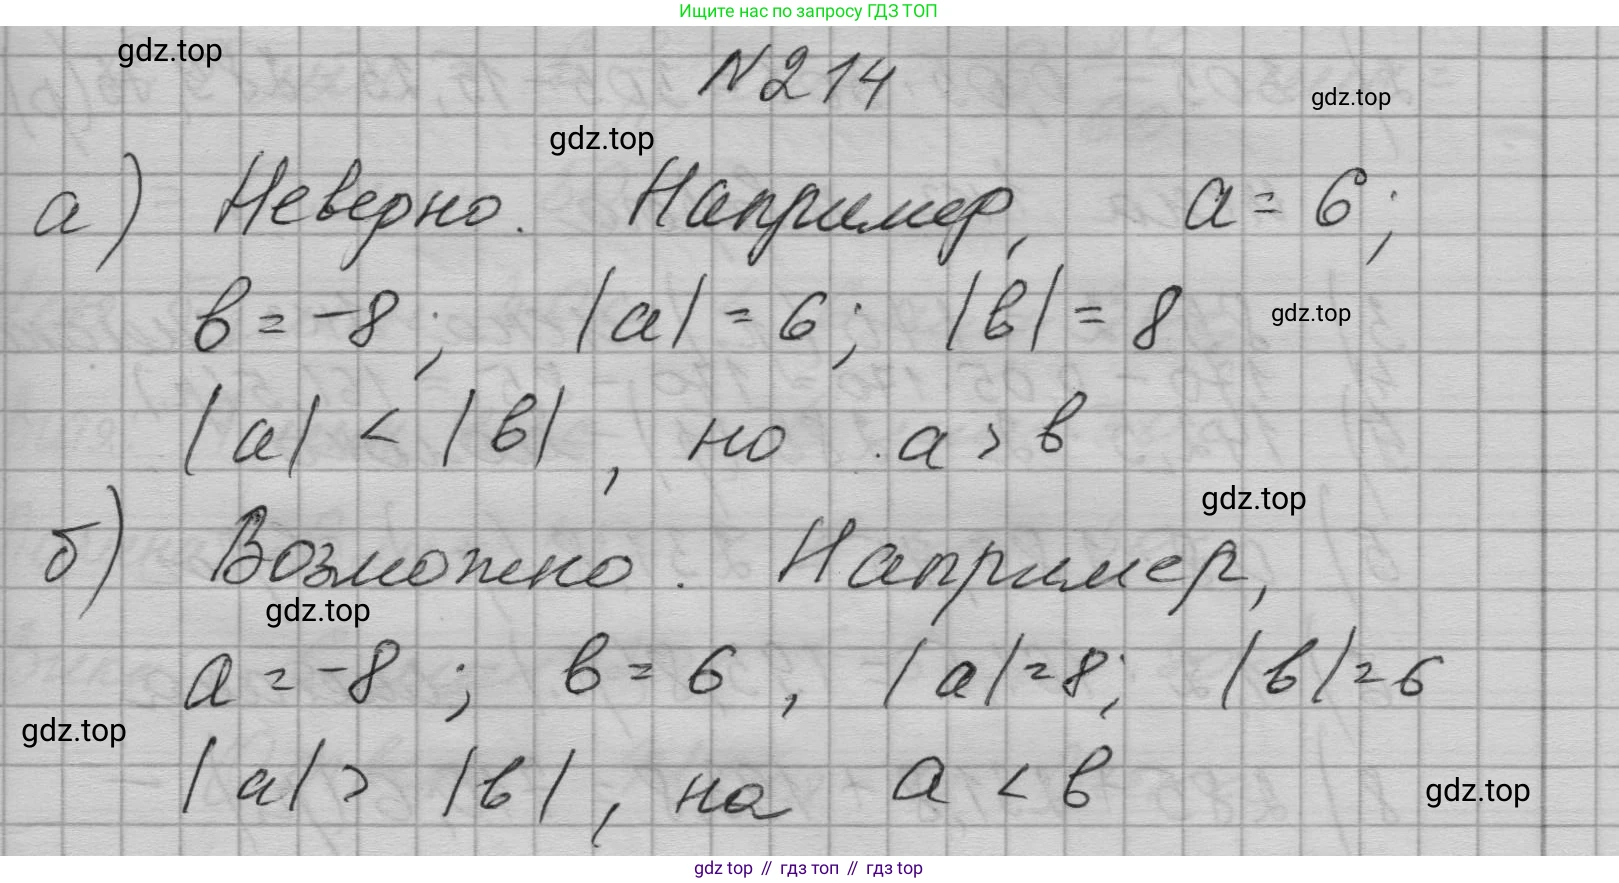 Ищите нас по запросу ГДЗ ТОП
gdz.top
N 214
gdz.top
gdz.top
а) Неверно. Например, a = 6;
в = -8; |a| = 6; |в| = 8
gdz.top
|a| < |в|, но a > в
gdz.top
б) Возможно. Например,
gdz.top
a = -8; в = 6, |a| = 8; |в| = 6
gdz.top
|a| > |в|, на a < в
gdz.top
gdz top // гдз топ // гдз top